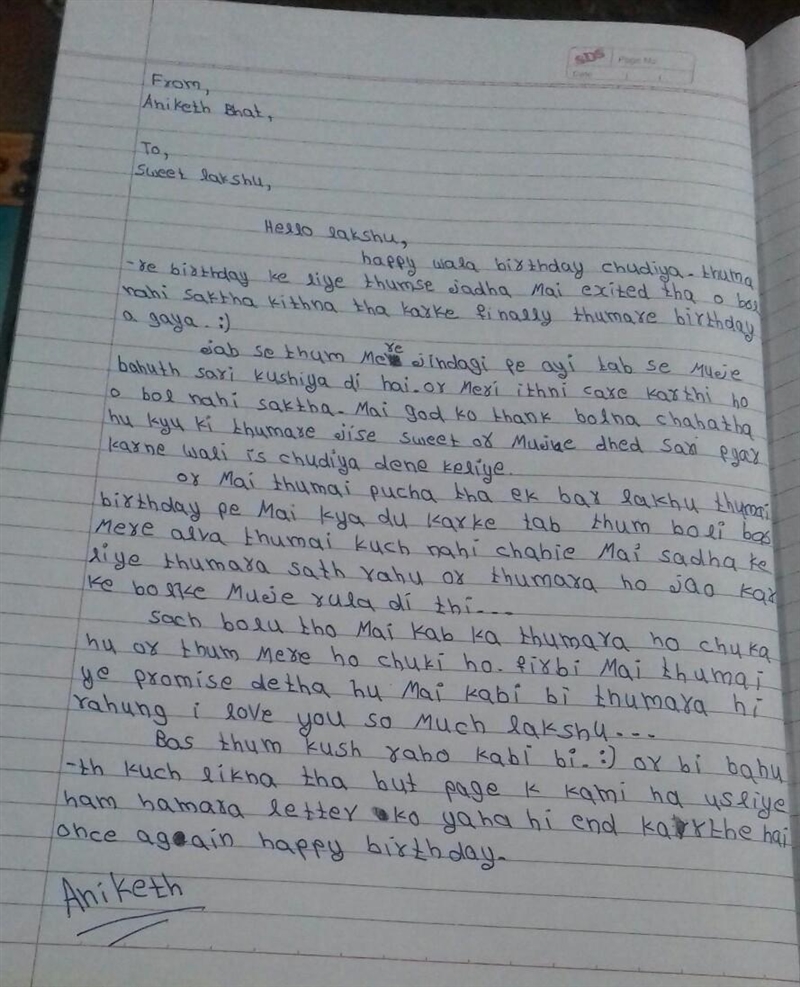 SDS Page No.
Date
From,
Aniketh Bhat,
To,
Sweet lakshu,
Hello lakshu,
happy wala birthday chudiya. thuma
-re birthday ke liye thumse jadha Mai exited tha o bol
nahi saktha kithna tha karke finally thumare birthday
a gaya. :)
Jab se thum Mere Jindagi pe ayi tab se Mueje
bahuth sari kushiya di hai. or Meri ithni care karthi ho
o bol nahi saktha. Mai god ko thank bolna chahatha
hu kyu ki thumare jise sweet or Mujue dhed sari pyar
karne wali is chudiya dene keliye.
or Mai thumai pucha tha ek bar lakhu thumai
birthday pe Mai kya du karke tab thum boli bas
Mere alva thumai kuch nahi chahie Mai sadha ke
liye thumara sath rahu or thumara ho jao kar
ke bolke Mueje rula di thi---
Sach bolu tho Mai kab ka thumara ho chuka
hu or thum Mere ho chuki ho. firbi Mai thumai
ye promise detha hu Mai kabi bi thumara hi
rahung i love you so Much lakshu---
Bas thum kush raho kabi bi. :) or bi bahu
-th kuch likna tha but page k kami ha usliye
ham hamara letter ko yaha hi end karthe hai
once again happy birthday.
Aniketh